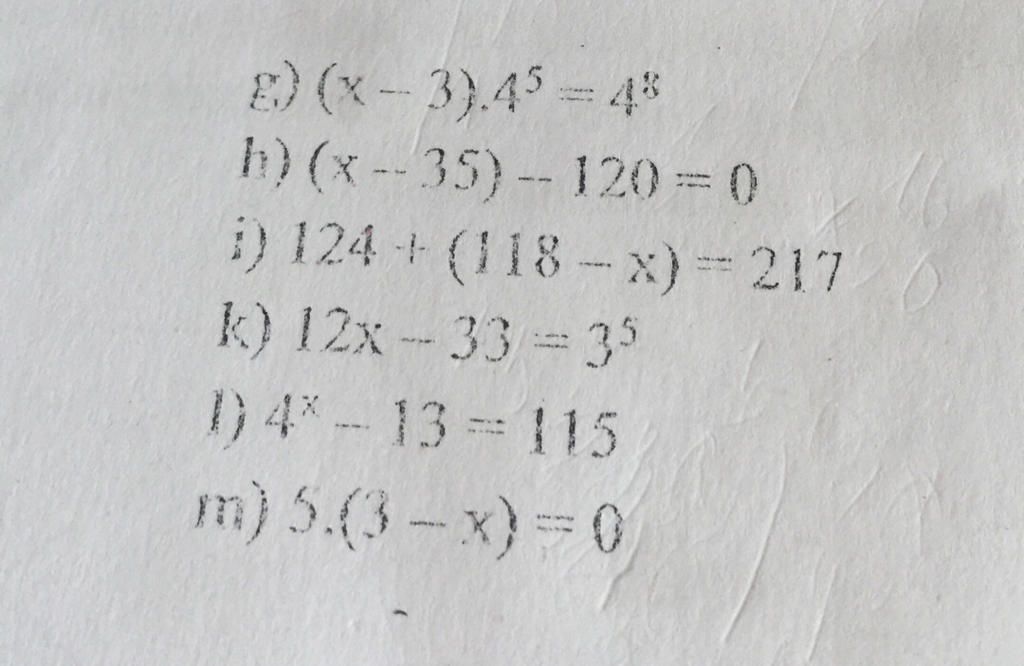 g) (x – 3).4⁵ = 4⁸
h) (x – 35) – 120 = 0
i) 124 + (118 – x) = 217
k) 12x – 33 = 3⁵
l) 4ˣ – 13 = 115
m) 5.(3 – x) = 0